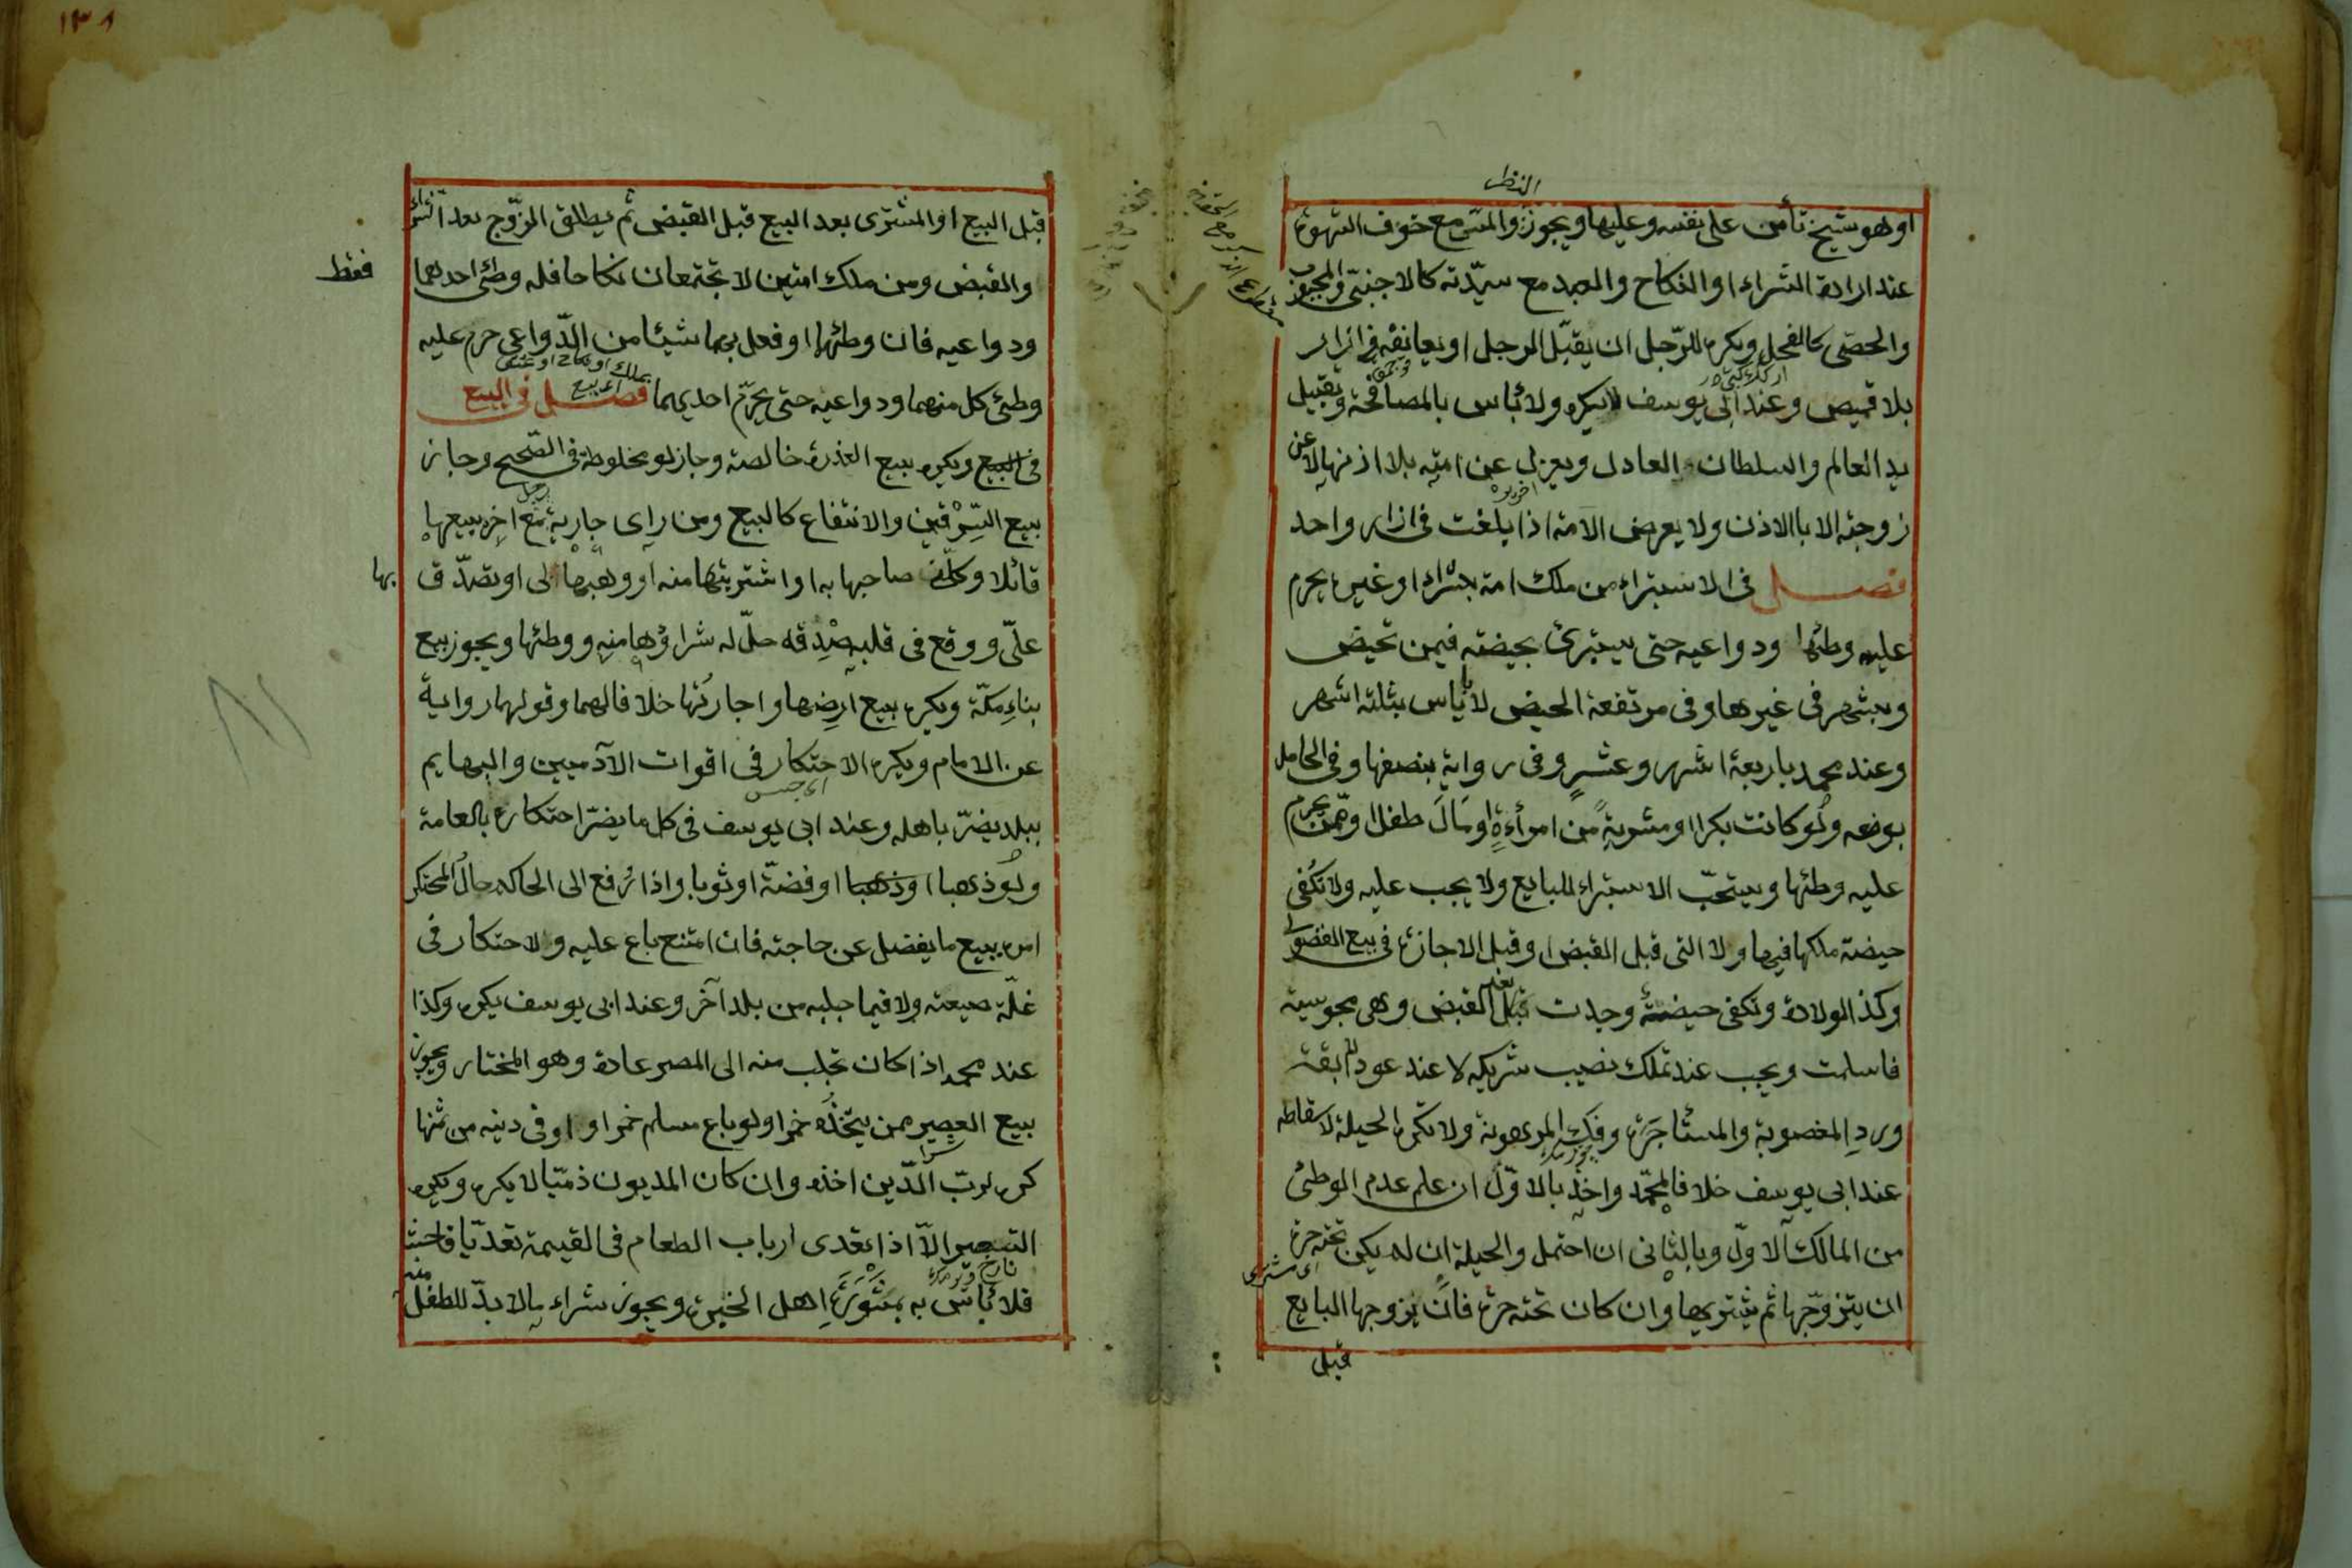 ١٣٨
النظر
او هو شيخ تأمن على نفسه وعليها ويجوز والمس مع خوف الشهوة
عند ارادة الشراء او النكاح والعبد مع سيّدته كالاجنبى والمجبوب
والخصى كالفحل ويكره للرّجل ان يقبّل الرجل او يعانقه فى ازار
بلا قميص وعند ابى يوسف لا يكره ولا بأس بالمصافحة وتقبيل
يد العالم والسلطان العادل ويعزل عن امته بلا اذنها لا عن
زوجته الا باالاذن ولا يعرض الامة اذا بلغت فى ازار واحد
فصل فى الاستبراء من ملك امة بشراء او غيره يحرم
عليه وطئها ودواعيه حتى يستبرئ بحيضته فيمن تحيض
وبشهر فى غيرها وفى مرتفعة الحيض لا باياس بثلثة اشهر
وعند محمد باربعة اشهر وعشر وفى رواية بنصفها وفى الحامل
بوضعه ولو كانت بكرا او مشرية من امرأة او مال طفل او ممن يحرم
عليه وطئها ويستحبّ الاستبراء للبايع ولا يجب عليه ولا تكفى
حيضة ملكها فيها ولا التى قبل القبض او قبل الاجازة فى بيع الفضولى
وكذا الولادة وتكفى حيضة وجدت قبل القبض وهى مجوسية
فاسلمت ويجب عند تملك نصيب شريكه لا عند عود الآبقة
ورد المغصوبة والمستأجرة وفك المرهونة ولا تكره الحيلة لاسقاطه
عند ابى يوسف خلافا لمحمّد واخذ بالاوّل ان علم عدم الوطئ
من المالك الاوّل وبالثانى ان احتمل والحيلة ان لم يكن تحته حرة
ان يتزوّجها ثم يشتريها وان كان تحته حرة فان يزوجها البايع
قبل
قبل البيع او المشترى بعد البيع قبل القبض ثم يطلق الزوّج بعد الشراء
والقبض ومن ملك امتين لا تجتمعان نكاحا فله وطئ احدهما
فقط
ودواعيه فان وطئها او فعل بهما شيئا من الدّواعى حرم عليه
وطئ كل منهما ودواعيه حتى يحرّم احديهما فصل فى البيع
فى البيع ويكره بيع العذرة خالصة وجاز لو مخلوطة فى الصّحيح وجاز
بيع السّرقين والانتفاع كالبيع ومن راى جارية مع اخر يبيعها
قائلا وكلّنى صاحبها به او اشتريتها منه او وهبها لى او تصدّق
بها
علىّ ووقع فى قلبه صدقه حلّ له شراؤها منه ووطئها ويجوز بيع
بناء مكّة ويكره بيع ارضها واجارتها خلافا لهما وقولهما رواية
عن الامام ويكره الاحتكار فى اقوات الآدميين والبهايم
ببلد يضرّ باهله وعند ابى يوسف فى كل ما يضرّ احتكاره بالعامة
ولو ذهبا او ذهبا او فضّة او ثوبا واذا رفع الى الحاكم حال المحتكر
امره ببيع ما يفضل عن حاجته فان امتنع باع عليه ولا احتكار فى
غلّة ضيعته ولا فيما جلبه من بلد آخر وعند ابى يوسف يكره وكذا
عند محمد اذا كان تجلب منه الى المصر عادة وهو المختار ويجوز
بيع العصير ممن يتخذه خمرا ولو باع مسلم خمرا او اوفى دينه من ثمنها
كره لربّ الدّين اخذه وان كان المديون ذمّيا لا يكره ويكره
التسعير الّا اذا تعدى ارباب الطعام فى القيمة تعدّيا فاحشا
فلا بأس به بمشورة اهل الخبرة ويجوز شراء ما لا بدّ للطفل منه